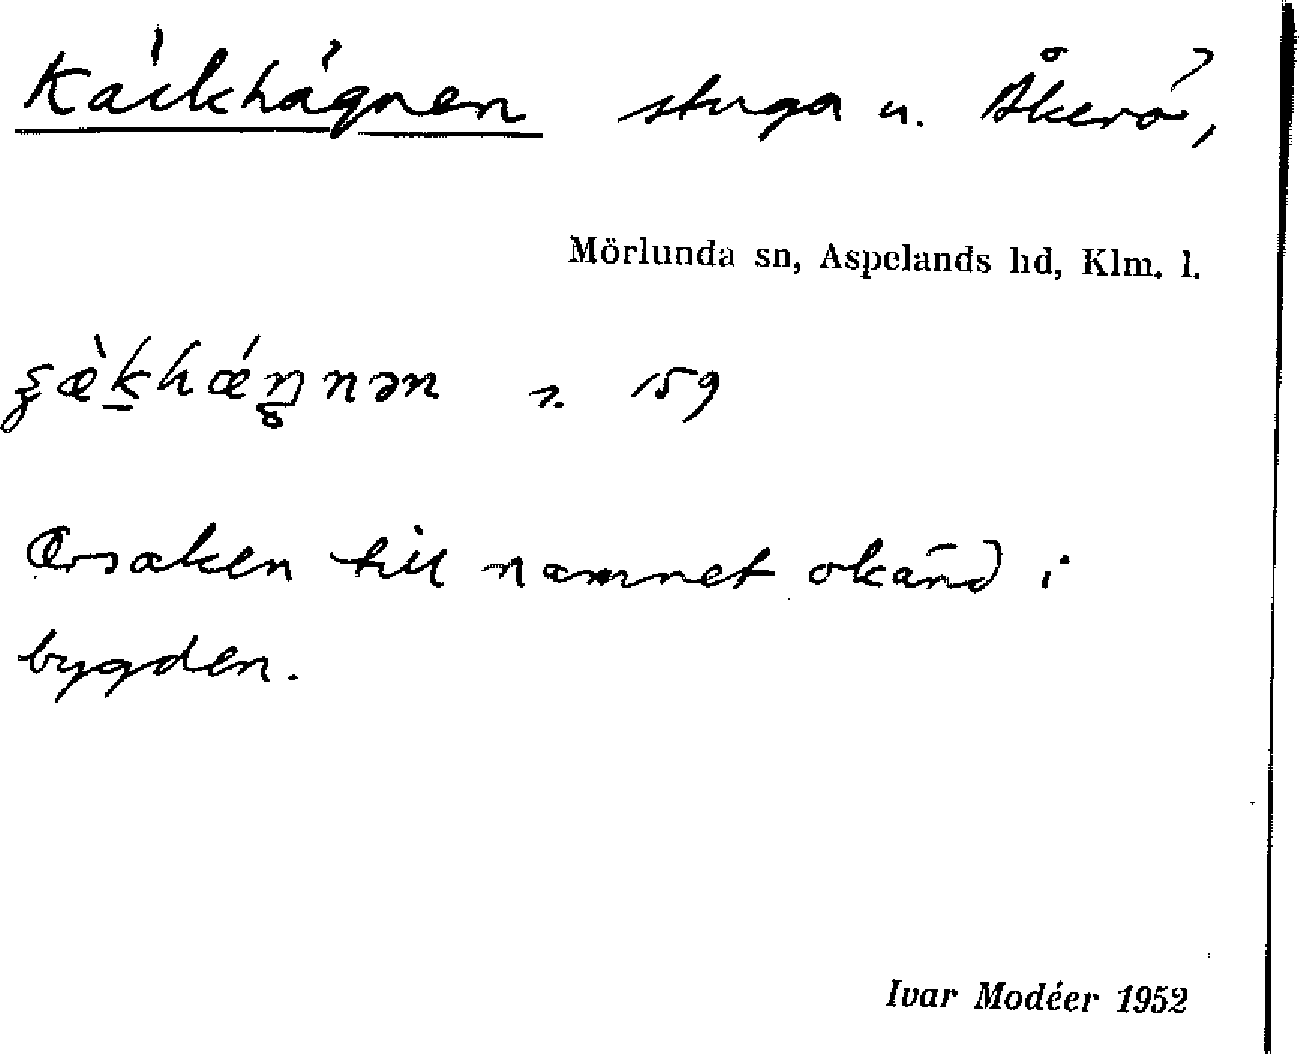 Käckhägnen stuga u. Åkerö,
Mörlunda sn, Aspelands hd, Klm. l.
159
Orsaken till namnet okänd i
bygden.
Ivar Modéer 1952